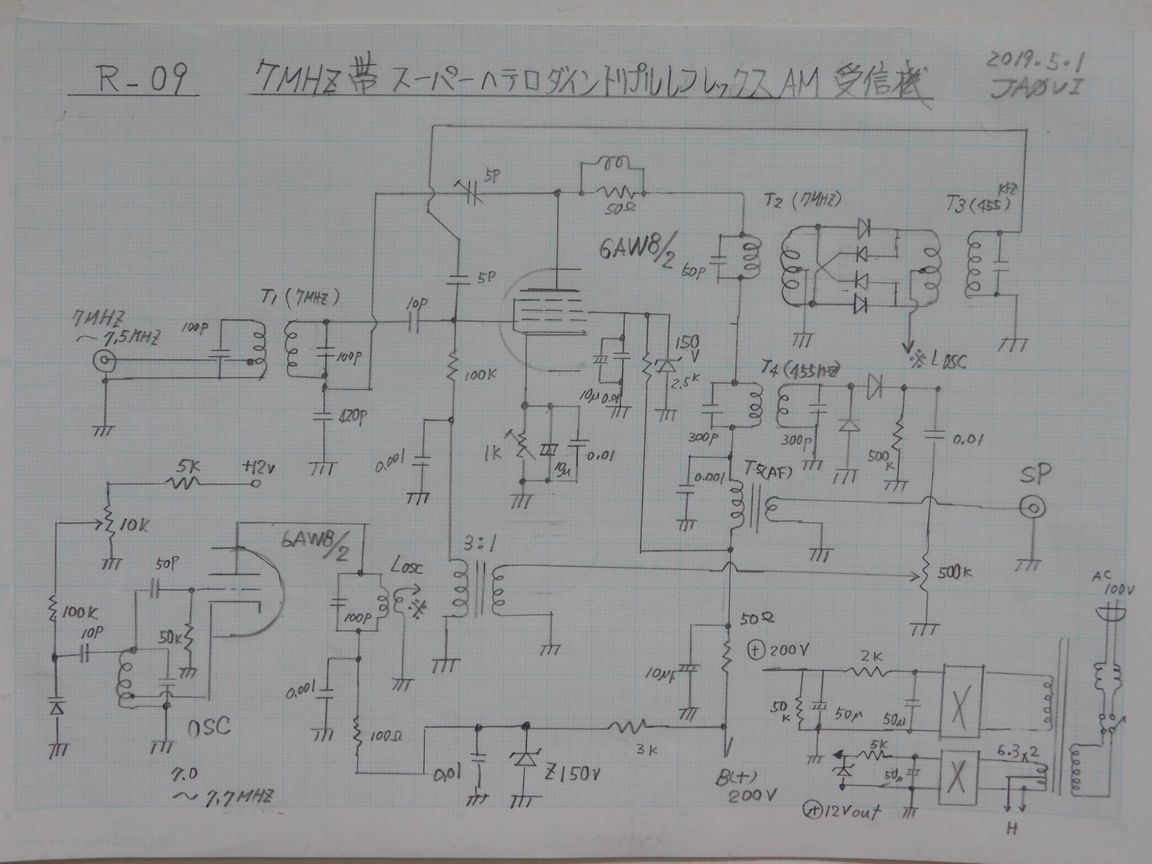 R-09
7MHZ帯 スーパーヘテロダイントリプルレフレックスAM 受信機
2019.5.1
JA0VI
5P
50Ω
T2 (7MHZ)
T3 (455)KHZ
6AW8/2
50P
5P
T1 (7MHZ)
10P
7MHZ
～7.5MHZ
100P
100P
150
V
※LOSC
2.5K
T4 (455KHZ)
100K
10μ
0.01
420P
300P
300P
1K
10μ
0.01
500
K
0.01
0.001
5K
+12v
0.001
T5(AF)
SP
10K
6AW8/2
3:1
50P
LOSC
※
500K
AC
100V
100K
100P
10P
50K
50Ω
⊕200V
2K
10μF
0.001
50
K
50μ
50μ
X
OSC
100Ω
3K
5K
6.3x2
0.01
Z150V
50μ
X
7.0
～7.7MHZ
B(+)
200V
⊕12Vout
H